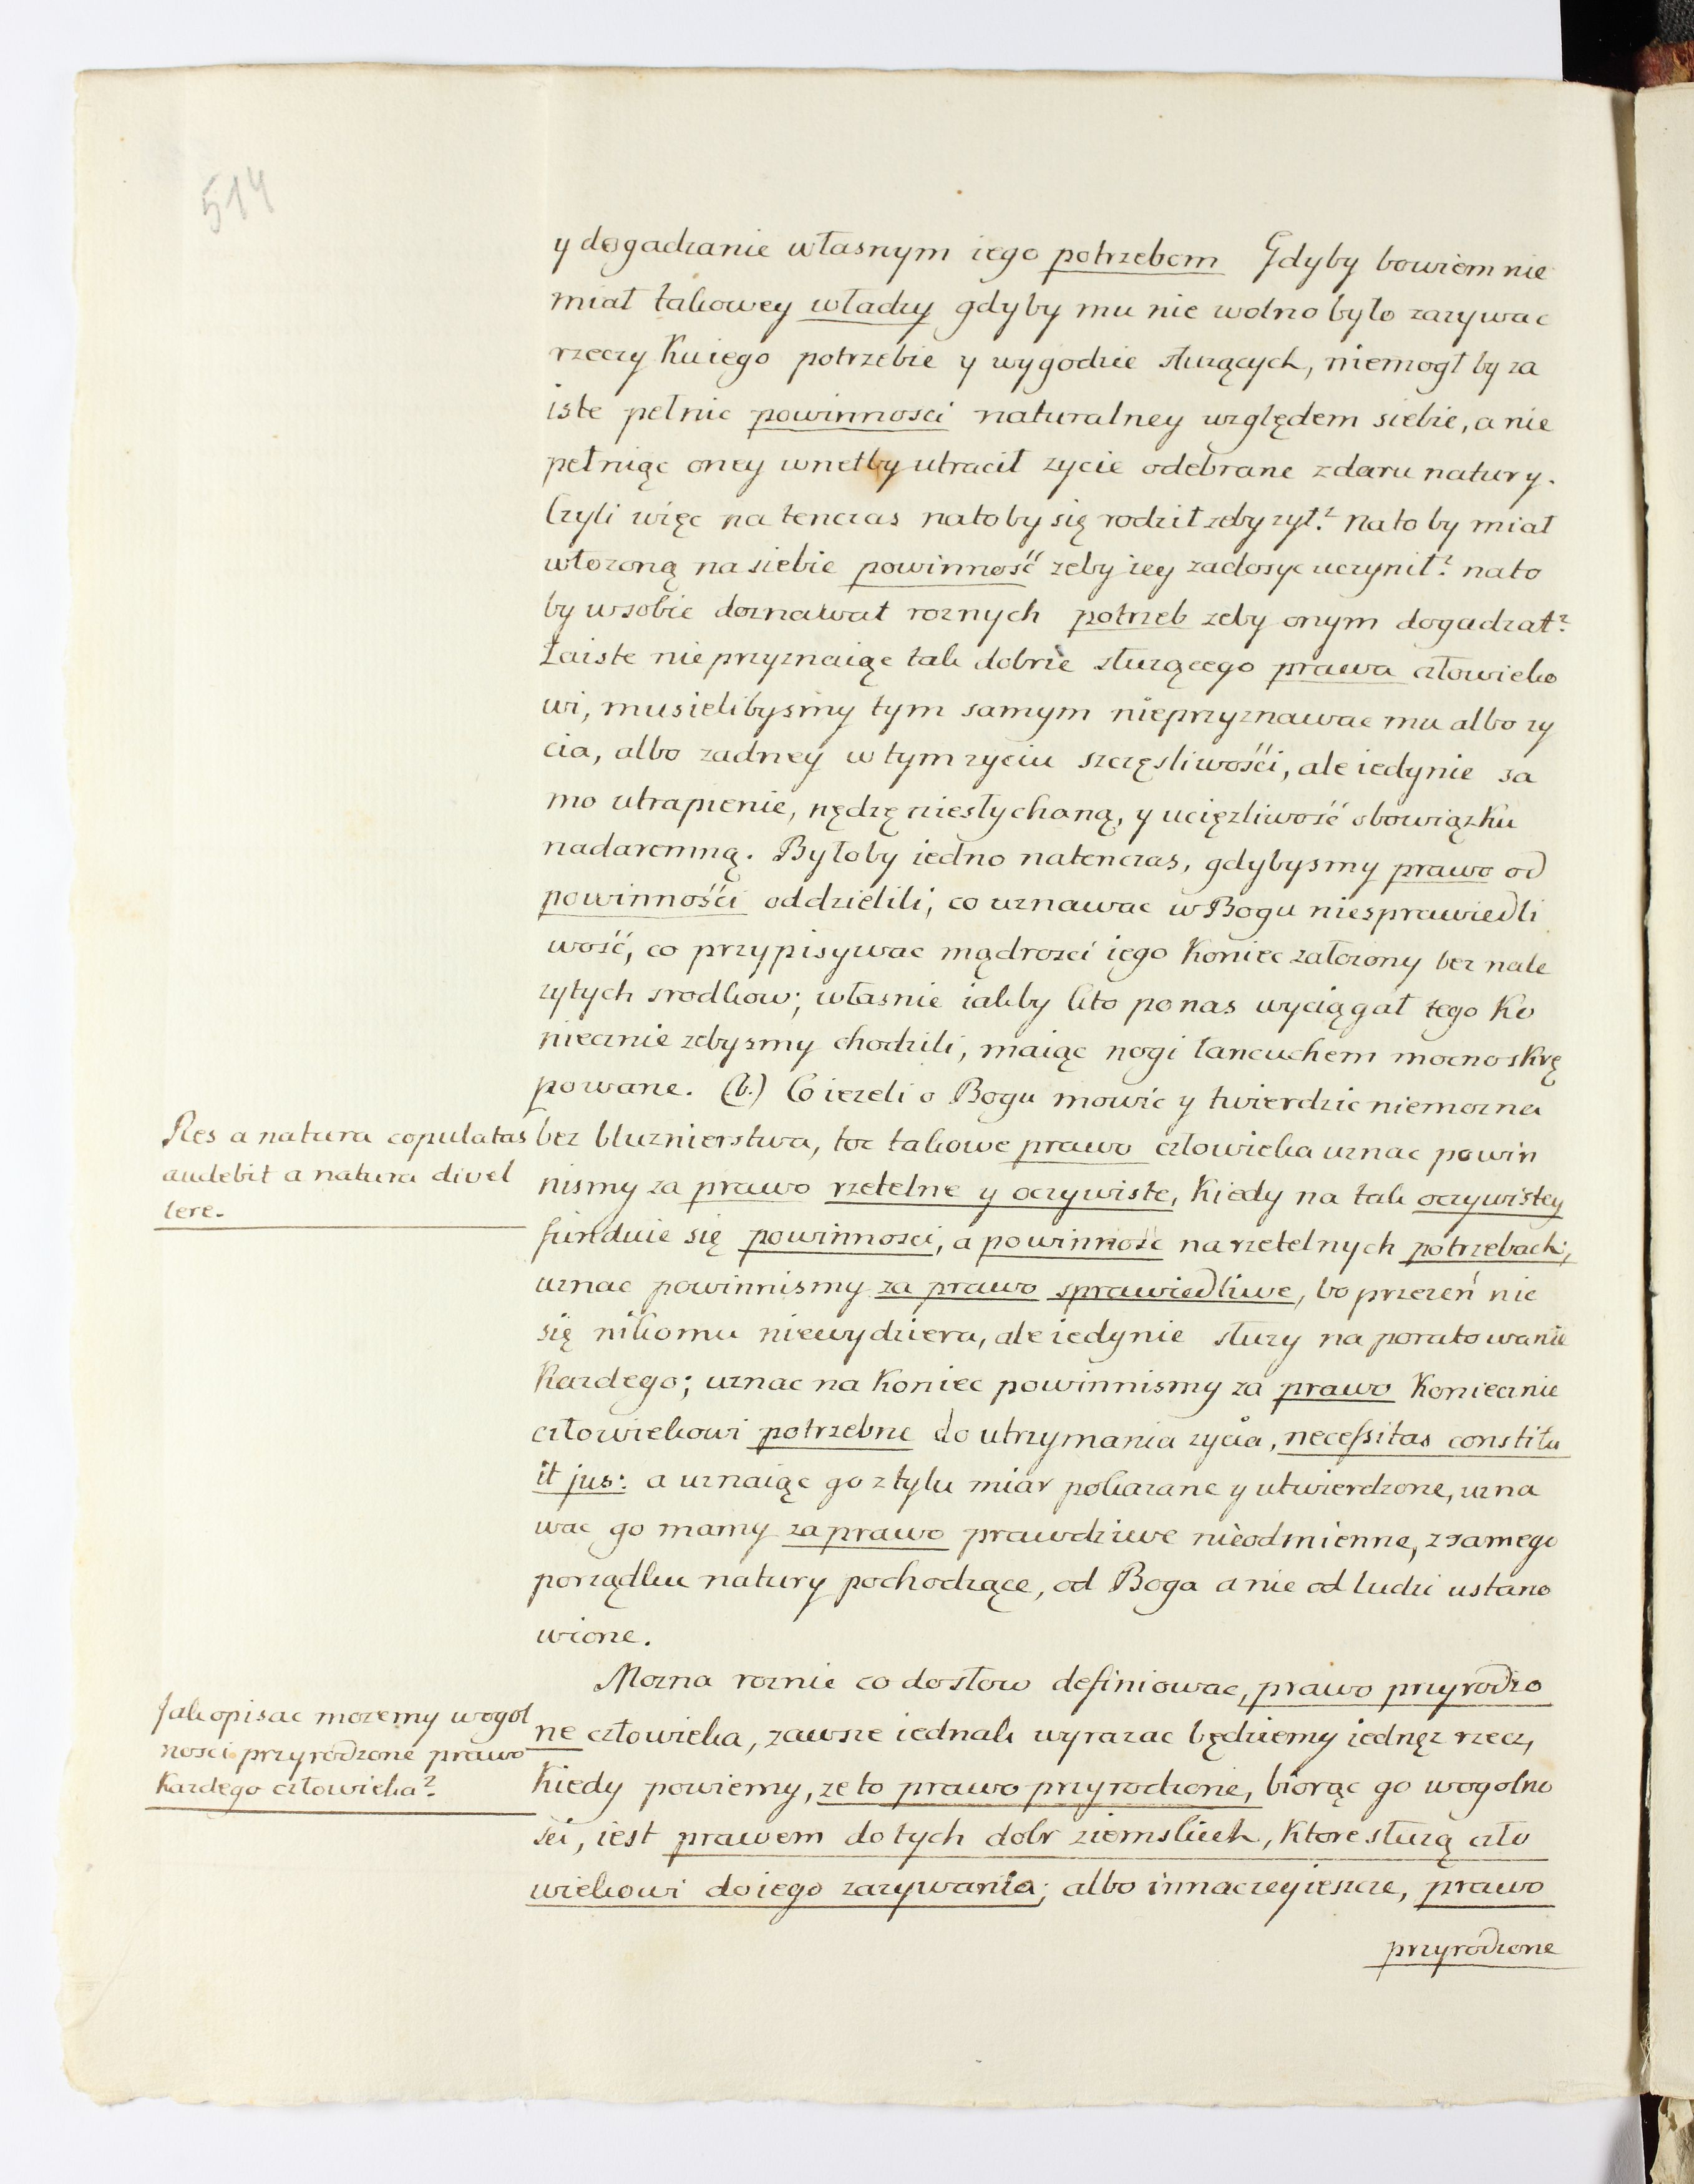 514
y dogadzanie własnym iego potrzebom Gdyby bowiem nie
miał takowey władzy gdyby mu nie wolno było zazywac
rzeczy ku iego potrzebie y wygodzie słuzących, niemogł by za
iste pełnic powinnosci naturalney względem siebie, a nie
pełniąc oney wnetby utracił zycie odebrane z daru natury.
Czyli więc na tenczas natoby się rodził zeby zył? na to by miał
włozoną na siebie powinność zeby iey zadosyc uczynił? nato
by w sobie doznawał roznych potrzeb zeby onym dogadzał?
Zaiste nie przyznaiąc tak dobrze słuzącego prawa człowieko
wi, musielibysmy tym samym nieprzyznawac mu albo zy
cia, albo zadney w tym zyciu szczęsliwości, ale iedynie sa
mo utrapienie, nędzę niesłychaną, y ucięzliwość obowiązku
nadaremną. Byłoby iedno natenczas, gdybysmy prawo od
powinności oddzielili, co uznawac w Bogu niesprawiedli
wość, co przypisywac mądrosci iego koniec załozony bez nale
zytych srodkow; własnie iakby kto po nas wyciągał tego ko
niecznie zebysmy chodzili, maiąc nogi łancuchem mocno skrę
powane. (b.) Co iezeli o Bogu mowić y twierdzic niemozna
Res a natura copulatas
audebit a natura divel
lere.
bez bluznierstwa, toc takowe prawo człowieka uznac powin
nismy za prawo rzetelne y oczywiste, kiedy na tak oczywistey
funduie się powinnosci, a powinność na rzetelnych potrzebach;
uznac powinnismy za prawo sprawiedliwe, bo przezeń nic
się nikomu niewydziera, ale iedynie słuzy na poratowanie
kazdego; uznac na koniec powinnismy za prawo koniecznie
człowiekowi potrzebne do utrzymania zycia, necessitas constitu
it jus: a uznaiąc go z tylu miar pokazane y utwierdzone, uzna
wac go mamy za prawo prawdziwe nieodmienne, z samego
porządku natury pochodzące, od Boga a nie od ludzi ustano
wione.
Mozna roznie co do słow definiowac, prawo przyrodzo
Jak opisac mozemy wogol
nosci przyrodzone prawo
kazdego człowieka?
ne człowieka, zawsze iednak wyrazac będziemy iednęz rzecz,
kiedy powiemy, ze to prawo przyrodzone, biorąc go wogolno
sci, iest prawem do tych dobr ziemskich, ktore słuzą czło
wiekowi do iego zazywania; albo innaczey ieszcze, prawo
przyrodzone